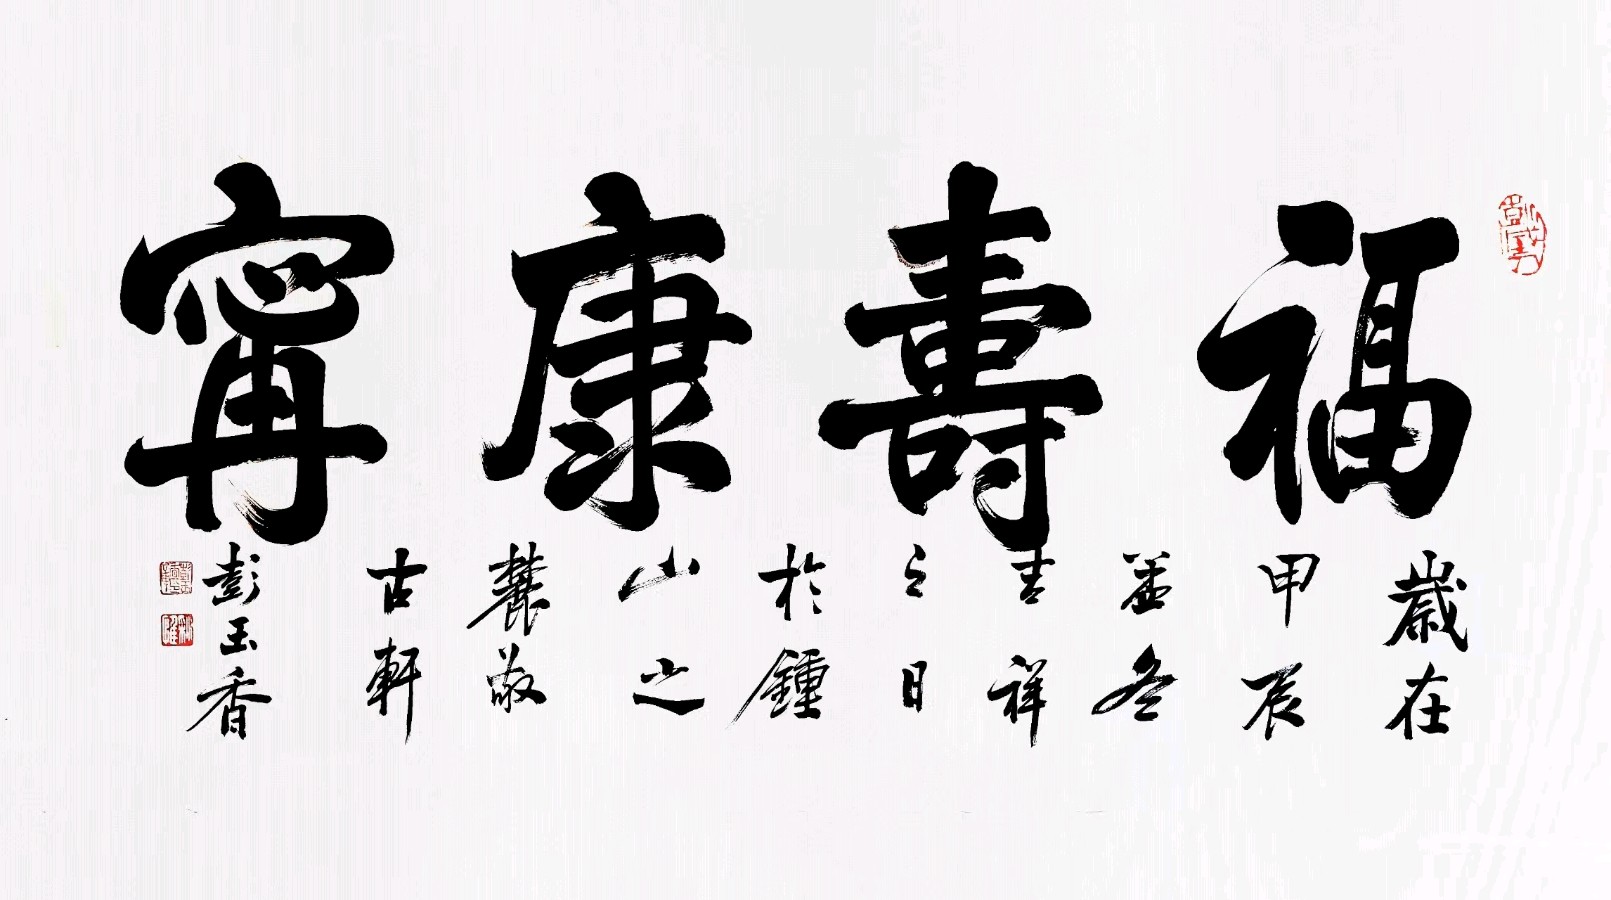 福壽康甯
歲在
甲辰
孟冬
吉祥
之日
於鍾
山之
麓敬
古軒
彭玉香